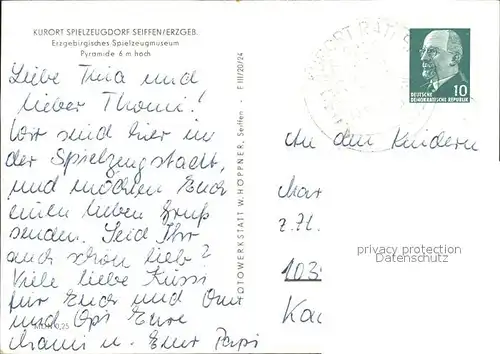 KURORT SPIELZEUGDORF SEIFFEN/ERZGEB.
Erzgebirgisches Spielzeugmuseum
Pyramide 6 m hoch
Liebe Tina und
lieber Thomi!
Wir sind hier in
der Spielzeugstadt,
und möchten Euch
einen lieben Gruß
senden. Seid Ihr
auch schön lieb?
Viele liebe Küssi
für Euch und Omi
und Opi Eure
Mami u. Euer Papi
MDN 0,25
FOTOWERKSTATT W. HÖPPNER, Seiffen - F III/20/24
KURORT
10
DEUTSCHE
DEMOKRATISCHE REPUBLIK
An den Kindern
z. Zt.
privacy protection
Datenschutz